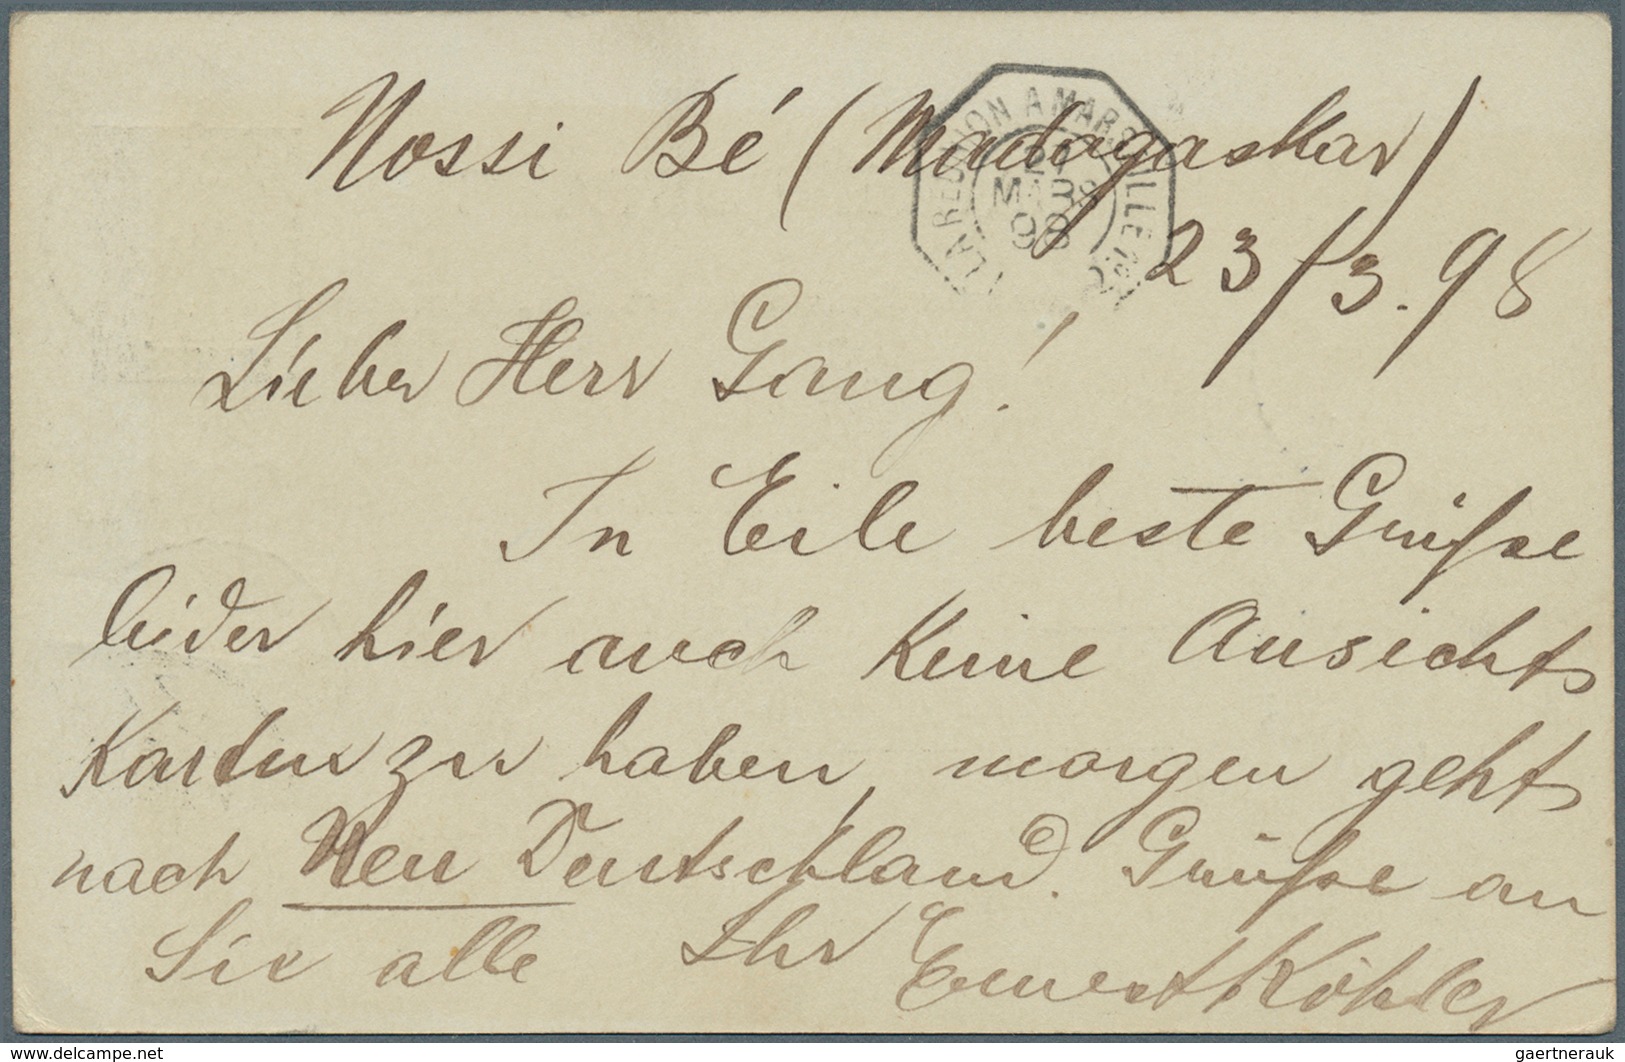 Nossi Bé (Madagaskar)
LA REUNION A MARSEILLE
24
MARS
98
23/3. 98
Lieber Herr Gang!
In Eile beste Grüße
leider hier auch keine Ansichts
Karten zu haben, morgen gehts
nach Neu Deutschland. Grüße an
Sie alle Ihr Ernest Köhler
www.delcampe.net
gaertnerauk